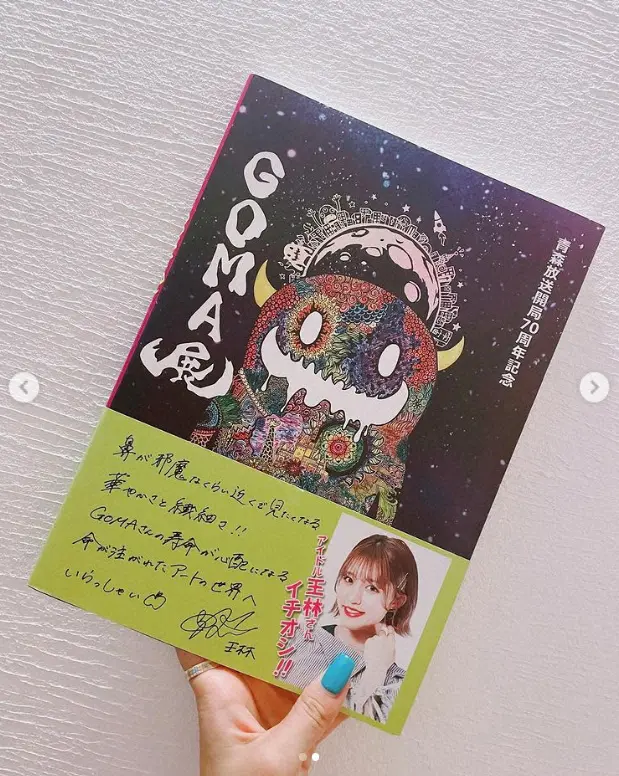 GOMA展
青森放送開局70周年記念
鼻が邪魔なくらい近くで見たくなる
華やかさと繊細さ!!
GOMAさんの寿命が心配になる
命が注がれたアートの世界へ
いらっしゃい
王林
アイドル王林さん
イチオシ!!